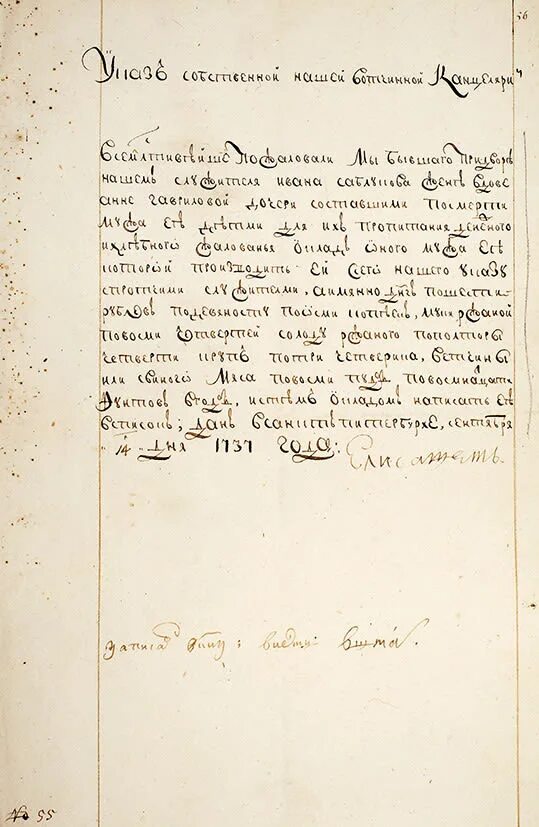 56
Указъ собственной нашей вотчинной Канцелярии
Всемлтивѣйше Пожаловали Мы бывшаго Придворѣ
нашемъ служителя ивана саблукова женѣ вдове
анне гавриловой дочери составшими посмерти
мужа еѣ дѣтми для ихъ пропитания денежного
ихлѣбного жалованья окладъ оного мужа еѣ
которой производить ей сего нашего указу
спротчими служители, аимянно днгъ пошести
рублевъ подевяносту повосми копѣекъ, муки ржаной
повосми четвертей солоду ржаного пополторы
четверти крупъ потри четверика, ветчины
или свиного Мяса повосми пудъ повосминатцати
Фунтовъ вгодъ, истемъ окладомъ написать еѣ
всписокъ; данъ всанктъпитеръбурхе, сентября
14 дня 1737 года:
Елисаветъ
записа
№ 55